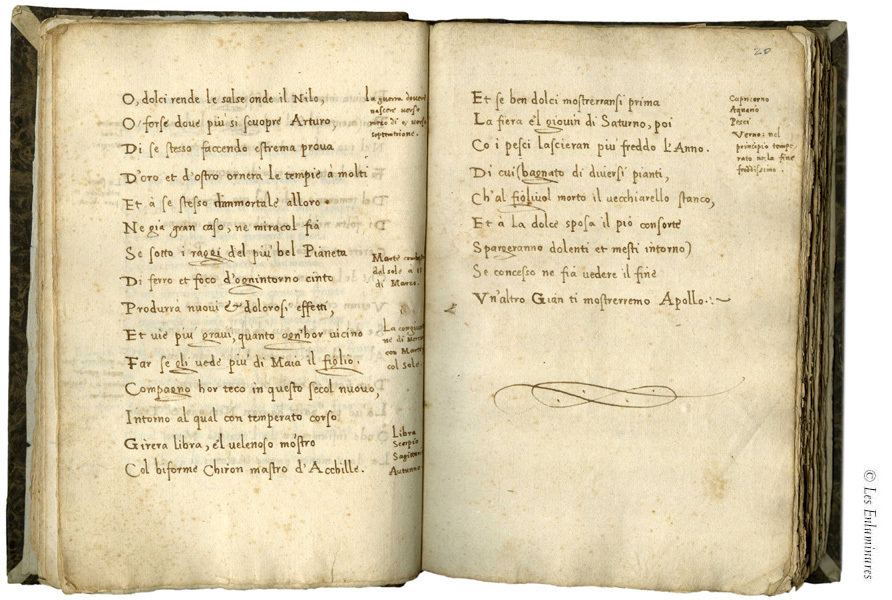 O, dolci rende le salse onde il Nilo,
O forse doue più si scuopre Arturo,
Di se stesso faccendo estrema proua
D'oro et d'ostro ornerà le tempie à molti
Et à se stesso d'immortale alloro.
Ne gia gran caso, ne miracol fià
Se sotto i raggi del piu bel Pianeta
Di ferro et foco d'ognintorno cinto
Produrrà nuoui et dolorosi effetti,
Et uie piu graui, quanto ogn'hor uicino
Far se gli uede piu di Maia il figlio.
Compagno hor teco in questo secol nuouo,
Intorno al qual con temperato corso
Girerà libra, e'l uelenoso mostro
Col biforme Chiron mastro d'Acchille.
la guerra douerà
nascere verso
settentrione.
Marte
dal sole a 11
di Marzo.
La
ne di
con Marte
col Sole.
Libra
Scorpio
Sagittario
Autunno
20
Et se ben dolci mostrerransi prima
La fiera e'l giouin di Saturno, poi
Co i pesci lascieran piu freddo l'Anno.
Di cui (bagnato di diuersi pianti,
Ch'al figliuol morto il uecchiarello stanco,
Et à la dolce sposa il piò consorte
Spargeranno dolenti et mesti intorno)
Se concesso ne fià uedere il fine
Vn'altro Gian ti mostrerremo Apollo.
Capricorno
Aquario
Pesci
Verno: nel
principio tempe
rato nela fine
freddissimo.
© Les Enluminures